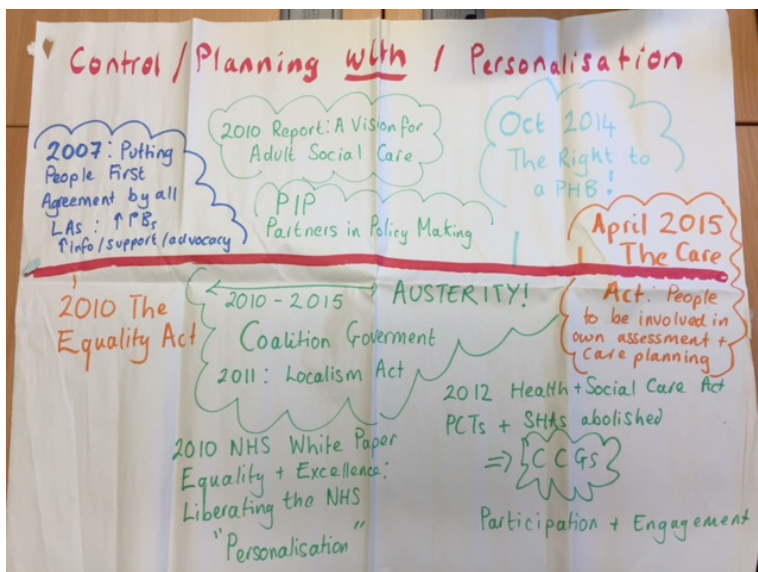 Control / Planning with / Personalisation
2007: Putting
People First
Agreement by all
LAs: ↑ PBs
↑ info/support/advocacy
2010 Report: A Vision for
Adult Social Care
PIP
Partners in Policy Making
Oct 2014
The Right to
a PHB!
April 2015
The Care
Act: People
to be involved in
own assessment +
care planning
2010 The
Equality Act
2010 - 2015 AUSTERITY!
Coalition Goverment
2011: Localism Act
2010 NHS White Paper
Equality + Excellence:
Liberating the NHS
"Personalisation"
2012 Health + Social Care Act
PCTs + SHAs abolished
⇒ CCGs
Participation + Engagement